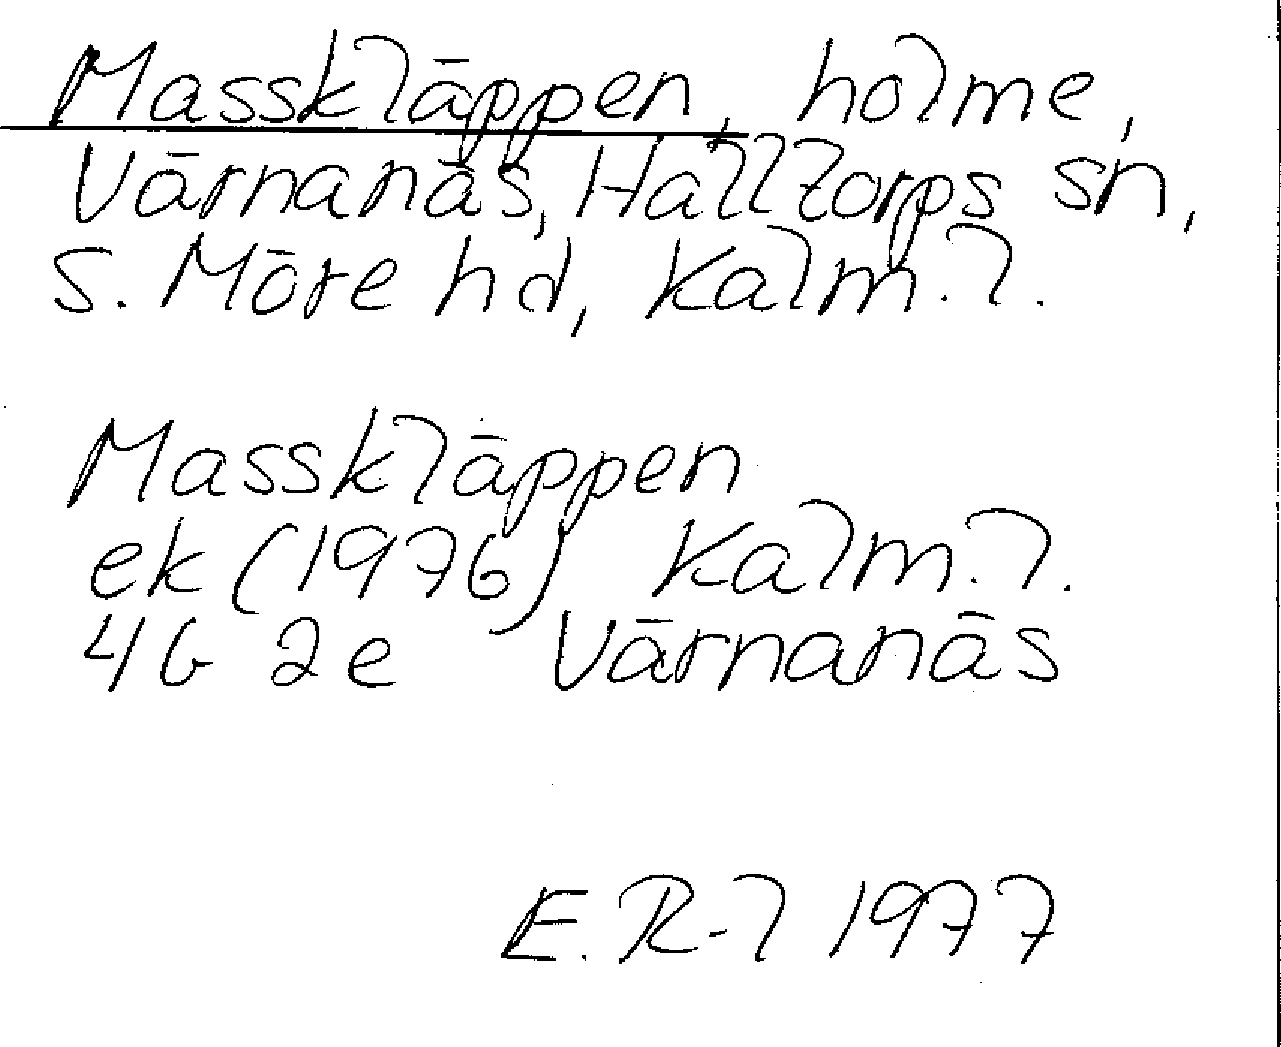 Masskläppen, holme,
Värnanäs, Halltorps sn,
S. Möre hd, Kalm. l.
Masskläppen
ek (1976) Kalm. l.
4G 2e Värnanäs
E. R-l 1977